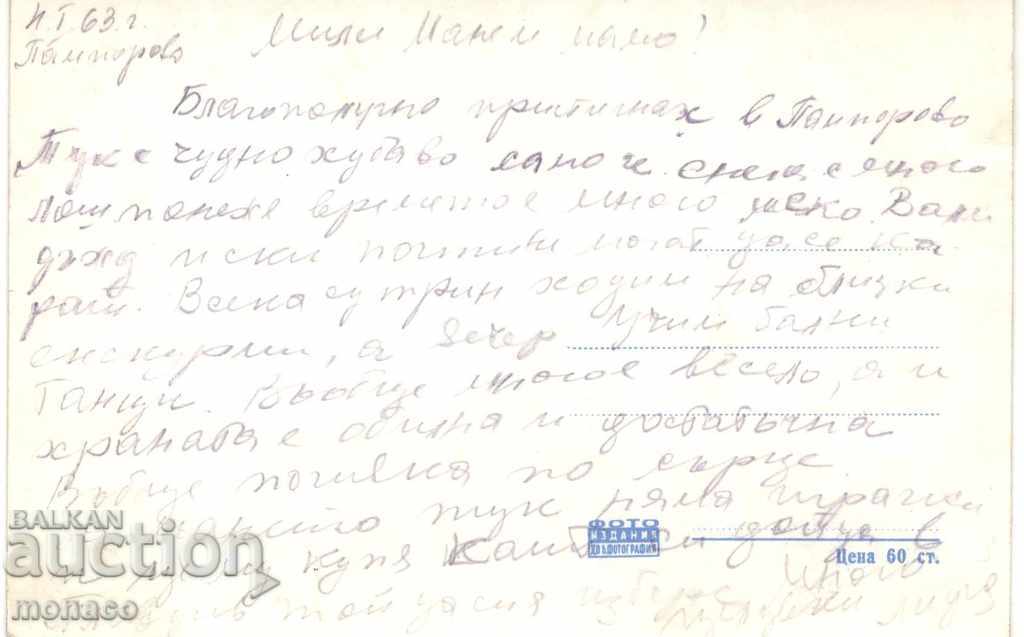 4.I.63 г.
Пампорово
Мили мамо!
Благополучно пристигнах в Пампорово
Тук е чудно хубаво само че снега е много
лош понеже времето е много меко. Вали
дъжд и ски почти не могат да се ка
рат. Всяка сутрин ходим на близки
екскурзии, а вечер учим бални
танци. Въобще много е весело, а и
храната е обилна и достатъчна
Въобще почивка по сърце.
тук няма
купя когато си дойда в
той да си избере много
ФОТО
ИЗДАНИЯ
ДП БЪЛ. ФОТОГРАФИЯ
Цена 60 ст.
BALKAN
auction
monaco